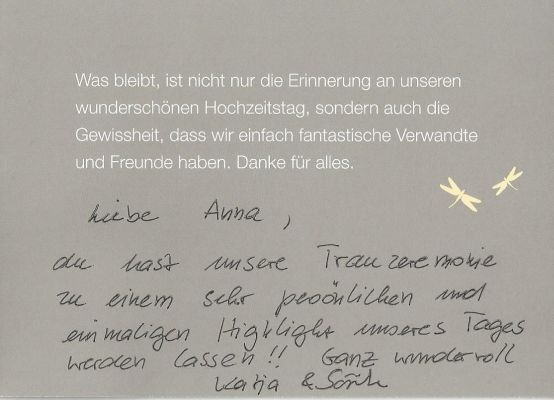 Was bleibt, ist nicht nur die Erinnerung an unseren
wunderschönen Hochzeitstag, sondern auch die
Gewissheit, dass wir einfach fantastische Verwandte
und Freunde haben. Danke für alles.
Liebe Anna,
du hast unsere Trauzeremonie
zu einem sehr persönlichen und
einmaligen Highlight unseres Tages
werden lassen!! Ganz wundervoll
Katja &